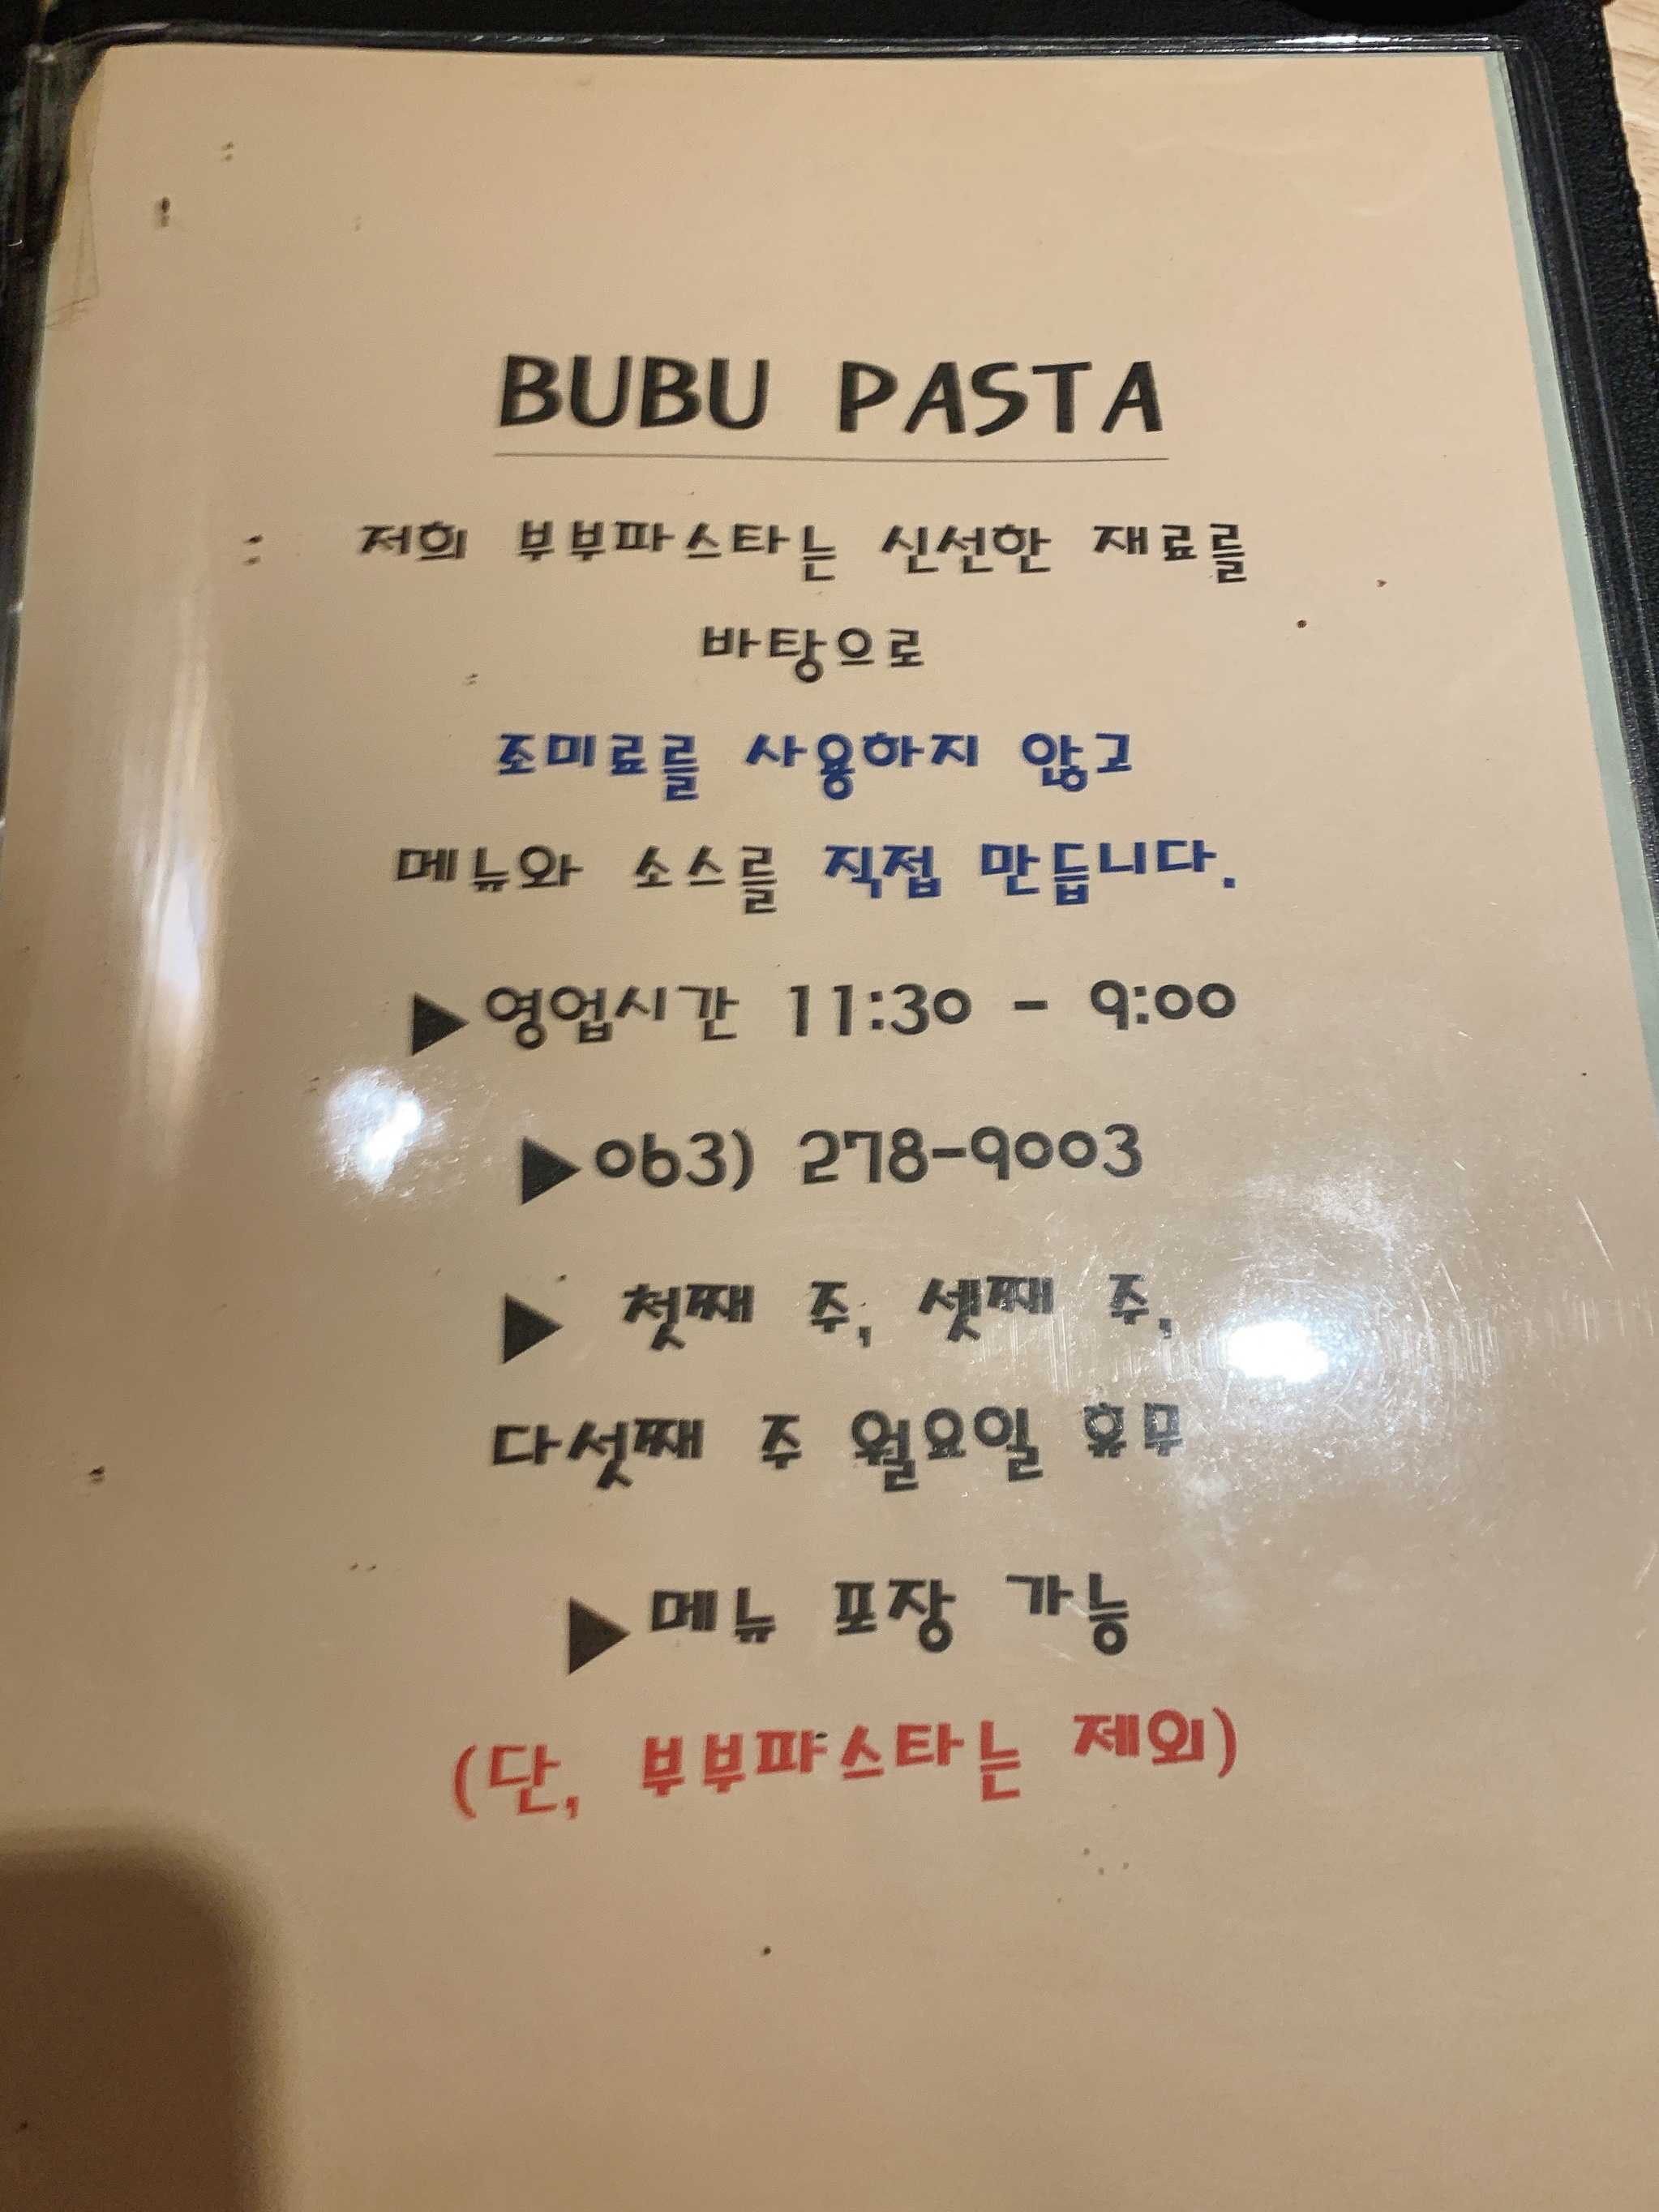 BUBU PASTA
: 저희 부부파스타는 신선한 재료를
바탕으로
조미료를 사용하지 않고
메뉴와 소스를 직접 만듭니다.
▶영업시간 11:30 - 9:00
▶063) 278-9003
▶ 첫째 주, 셋째 주,
다섯째 주 월요일 휴무
▶메뉴 포장 가능
(단, 부부파스타는 제외)